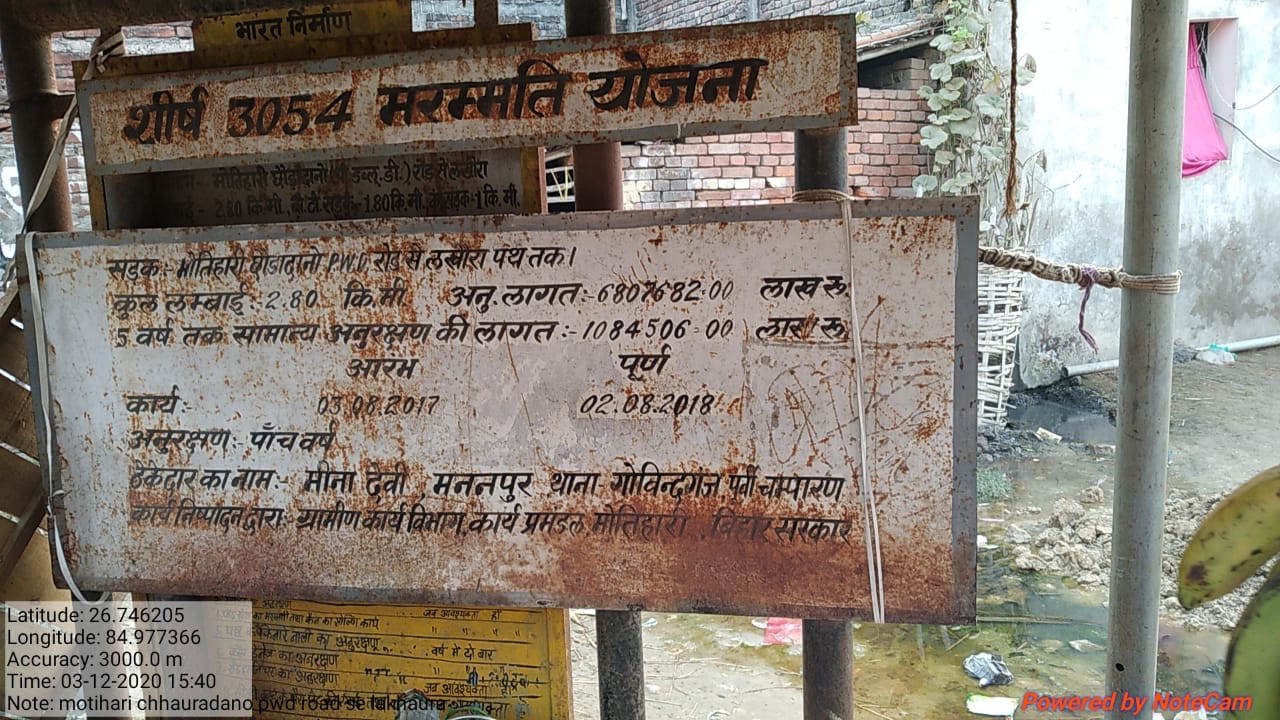 भारत निर्माण
शीर्ष 3054 मरम्मति योजना
मोतिहारी घोड़ादानो डब्लू. डी.) रोड से लखौरा
2.80 कि.मी., बी.टी. सड़क- 1.80 कि.मी. 1 कि. मी.
सड़क:- मोतिहारी घोडादानो P.W.D. रोड से लखौरा पथ तक।
कुल लम्बाई:- 2.80 कि.मी अनु. लागत:- 6807682=00 लाख रू
5 वर्ष तक सामान्य अनुरक्षण की लागत:- 1084506=00 लाख रू
आरंभ पूर्ण
कार्य:- 03.08.2017 02.08.2018
अनुरक्षण:- पाँच वर्ष
ठेकेदार का नाम:- मीना देवी, मननपुर थाना गोविन्दगंज, पूर्वी चम्पारण
कार्य निष्पादन द्वारा:- ग्रामीण कार्य विभाग, कार्य प्रमंडल, मोतिहारी, बिहार सरकार
अनुरक्षण
जब आवश्यकता हो
नाली का अनुरक्षण " " "
का अनुरक्षण वर्ष में दो बार
का अनुरक्षण " "
जब आवश्यकता
Latitude: 26.746205
Longitude: 84.977366
Accuracy: 3000.0 m
Time: 03-12-2020 15:40
Note: motihari chhauradano pwd road se lakhaura
Powered by NoteCam